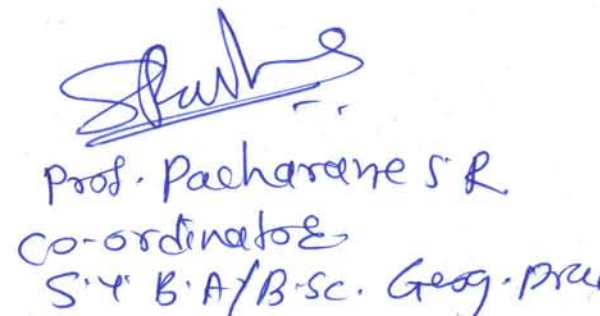 Prof. Pacharane S.R
Co-ordinator
S.Y B.A/B.Sc. Geog.